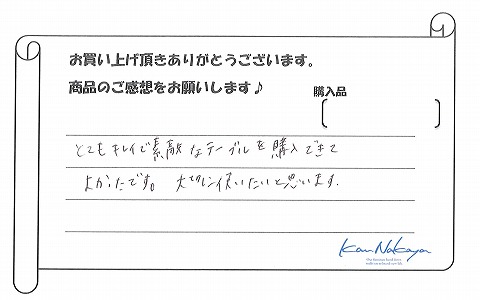 お買い上げ頂きありがとうございます。
商品のご感想をお願いします♪
購入品
とてもキレイで素敵なテーブルを購入できて
よかったです。大切に使いたいと思います.
Kan Nakaya